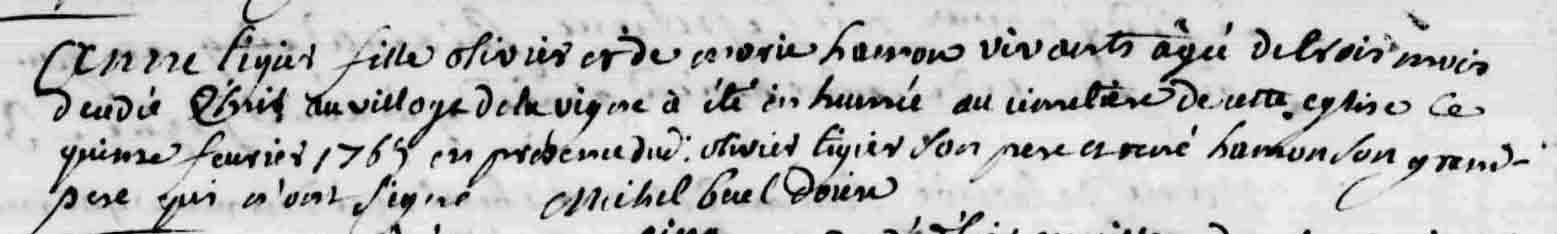 Anne tigier fille olivier et de marie hamon vivants âgé de trois mois
décédé au village de la vigne à été inhumée au cimetiere de cette eglise Ce
quinze fevrier 1765 en présence dud. olivier tigier Son pere et rené hamon son grand-
pere qui n'ont signé Michel